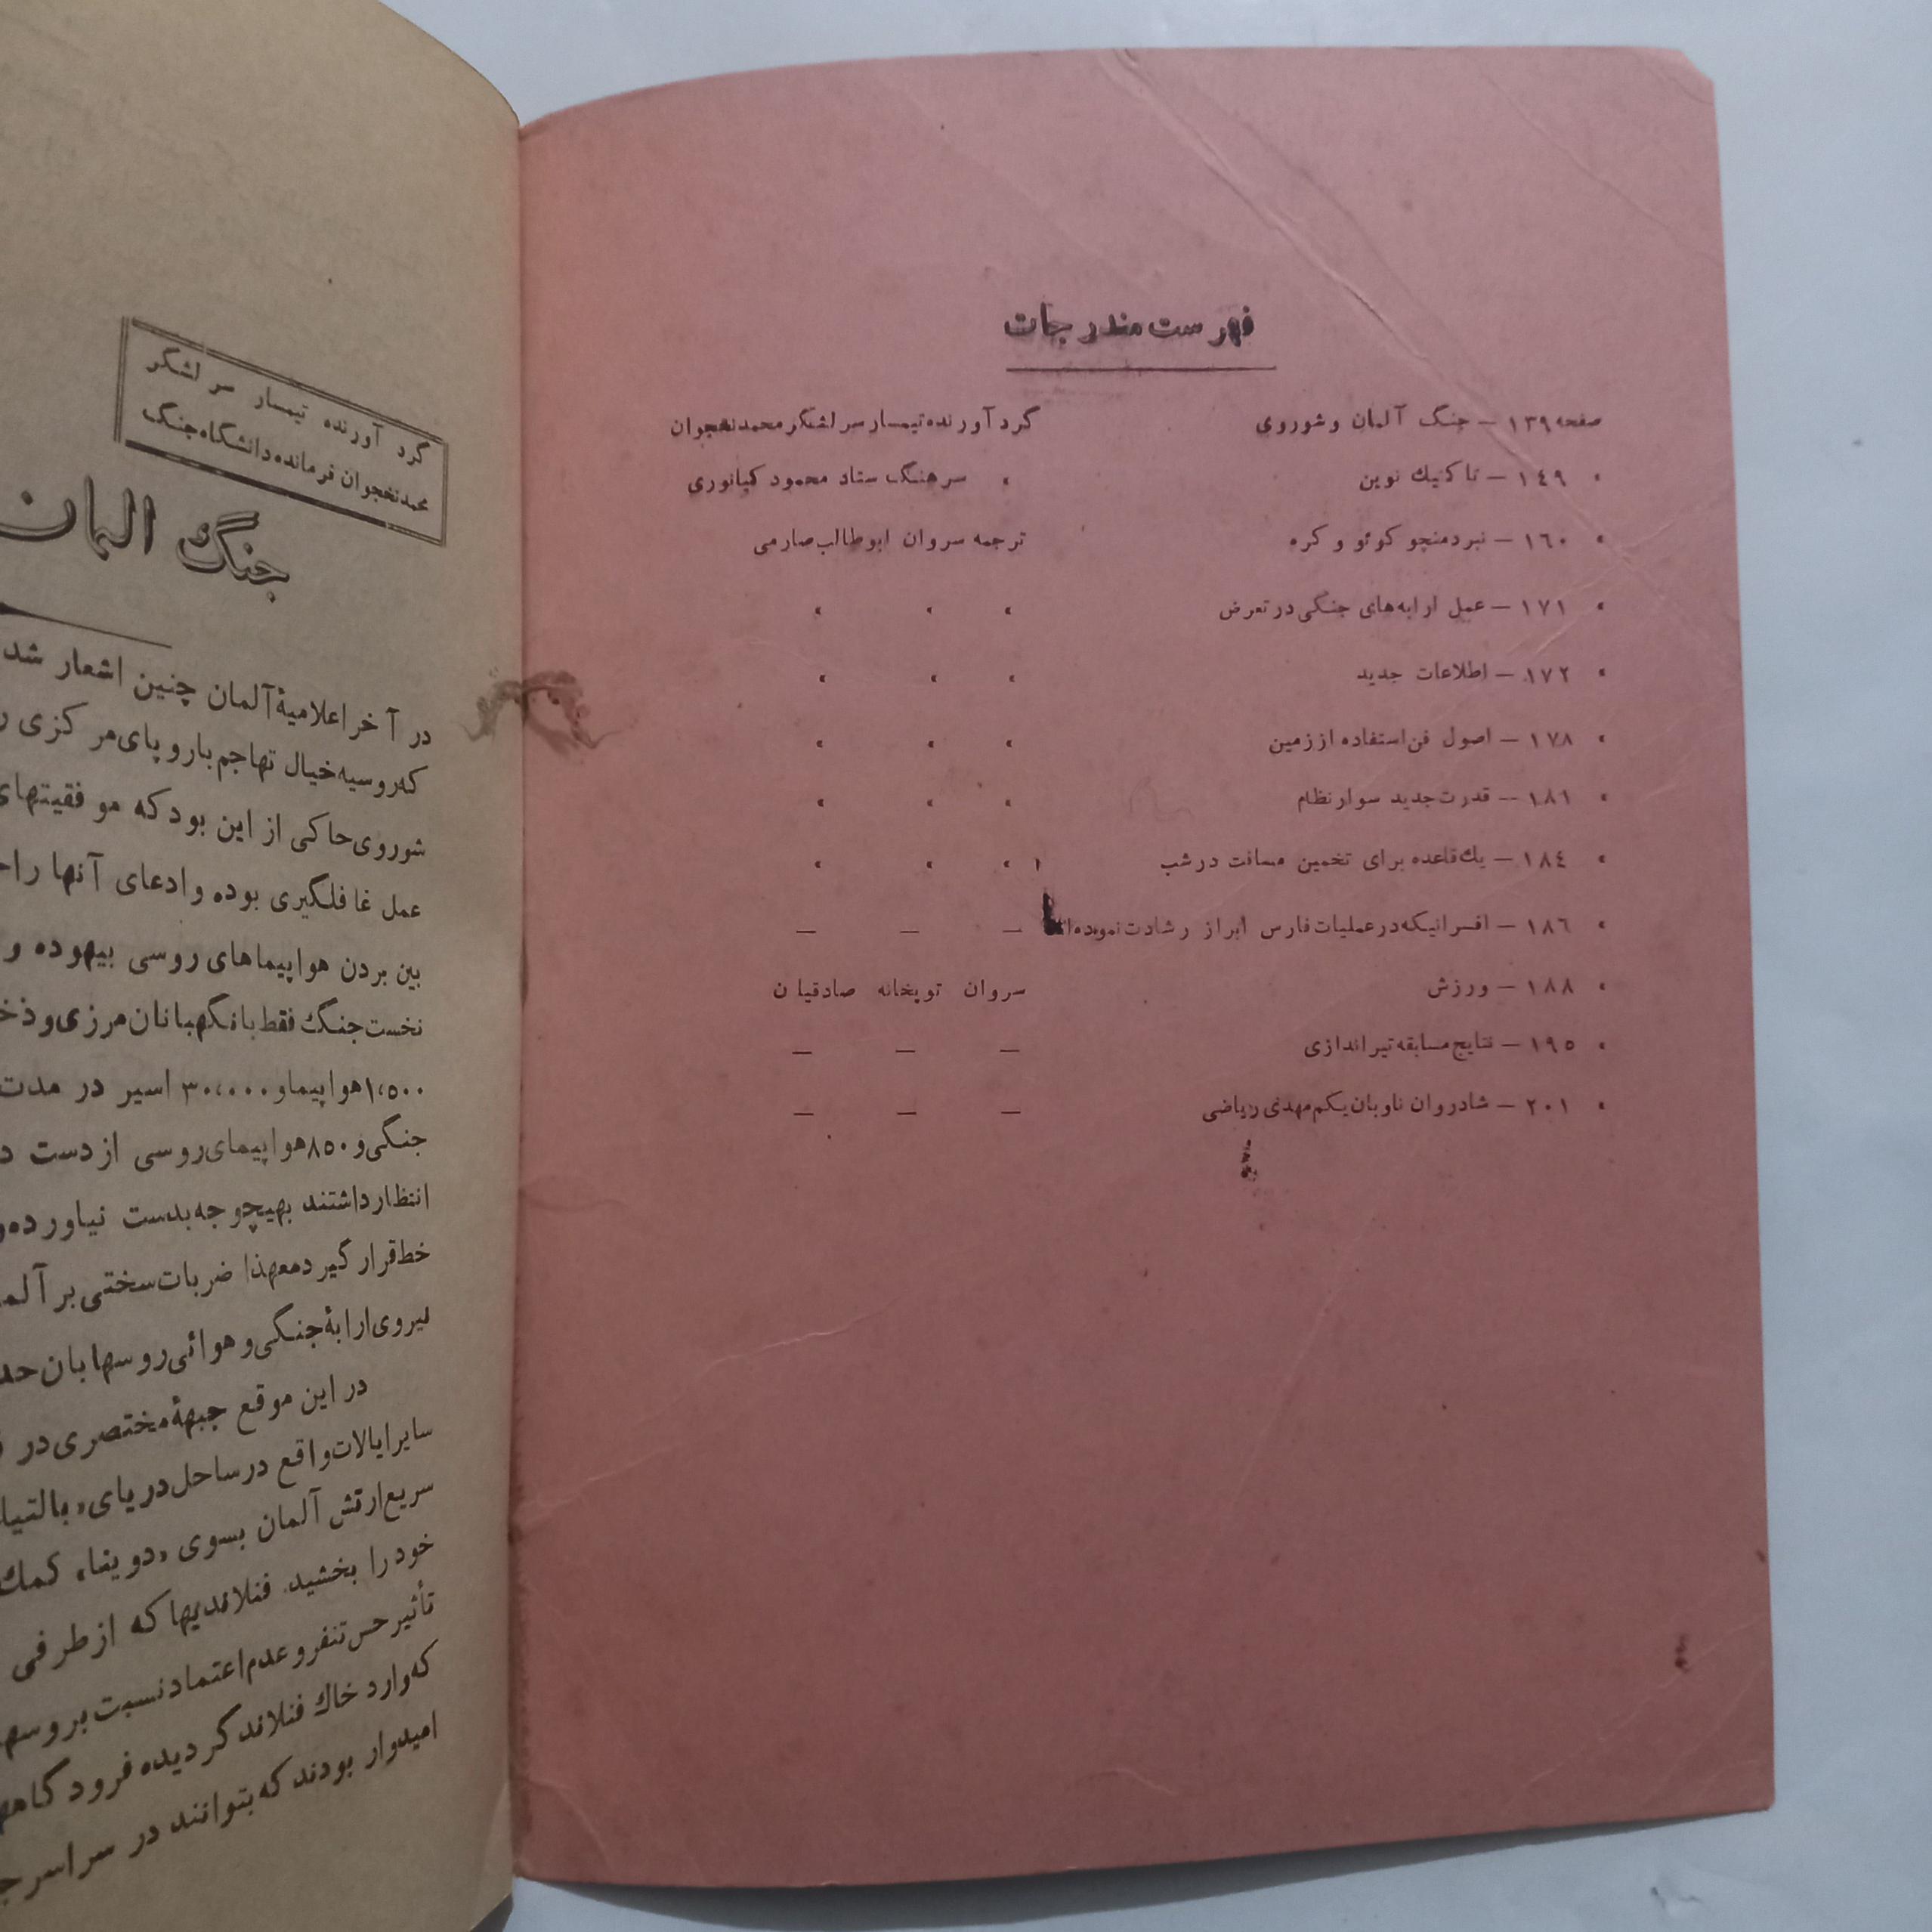 فهرست مندرجات
صفحه ۱۳۹ — جنگ آلمان و شوروی گردآورنده تیمسار سرلشگر محمد نخجوان
» ۱٤۹ — تاکتیك نوین » سرهنگ ستاد محمود کیانوری
» ۱٦۰ — نبرد منچو کوئو و کره ترجمه سروان ابوطالب صارمی
» ۱۷۱ — عمل ارابه‌های جنگی در تعرض » » »
» ۱۷۲ — اطلاعات جدید » » »
» ۱۷۸ — اصول فن استفاده از زمین » » »
» ۱۸۱ — قدرت جدید سوار نظام » » »
» ۱۸٤ — یك قاعده برای تخمین مسافت در شب » » »
» ۱۸٦ — افسرانیکه در عملیات فارس ابراز رشادت نموده‌اند — — —
» ۱۸۸ — ورزش سروان توپخانه صادقیان
» ۱۹٥ — نتایج مسابقه تیراندازی — — —
» ۲۰۱ — شادروان ناوبان یکم مهدی ریاضی — — —
گرد آورنده تیمسار سر لشگر
محمد نخجوان فرمانده دانشگاه جنگ
جنگ المان
در آخر اعلامیهٔ آلمان چنین اشعار شد
که روسیه خیال تهاجم باروپای مرکزی
شوروی حاکی از این بود که موفقیتهای
عمل غافلگیری بوده و ادعای آنها را
بین بردن هواپیماهای روسی بیهوده و
نخست جنگ فقط با نگهبانان مرزی و
۱،٥۰۰ هواپیما و ۳۰،۰۰۰ اسیر در مدت
جنگی و ۸٥۰ هواپیمای روسی از دست
انتظار داشتند بهیچوجه بدست نیاورده
خط قرار گیرد معهذا ضربات سختی بر
نیروی ارابهٔ جنگی و هوائی روسها بان
در این موقع جبههٔ مختصری در
سایر ایالات واقع در ساحل دریای «بالتیك
سریع ارتش آلمان بسوی «دوینا» کمك
خود را بخشید. فنلاندیها که از طرفی
تأثیر حس تنفر و عدم اعتماد نسبت بروسها
که وارد خاك فنلاند گردیده فرودگاه
امیدوار بودند که بتوانند در سراسر